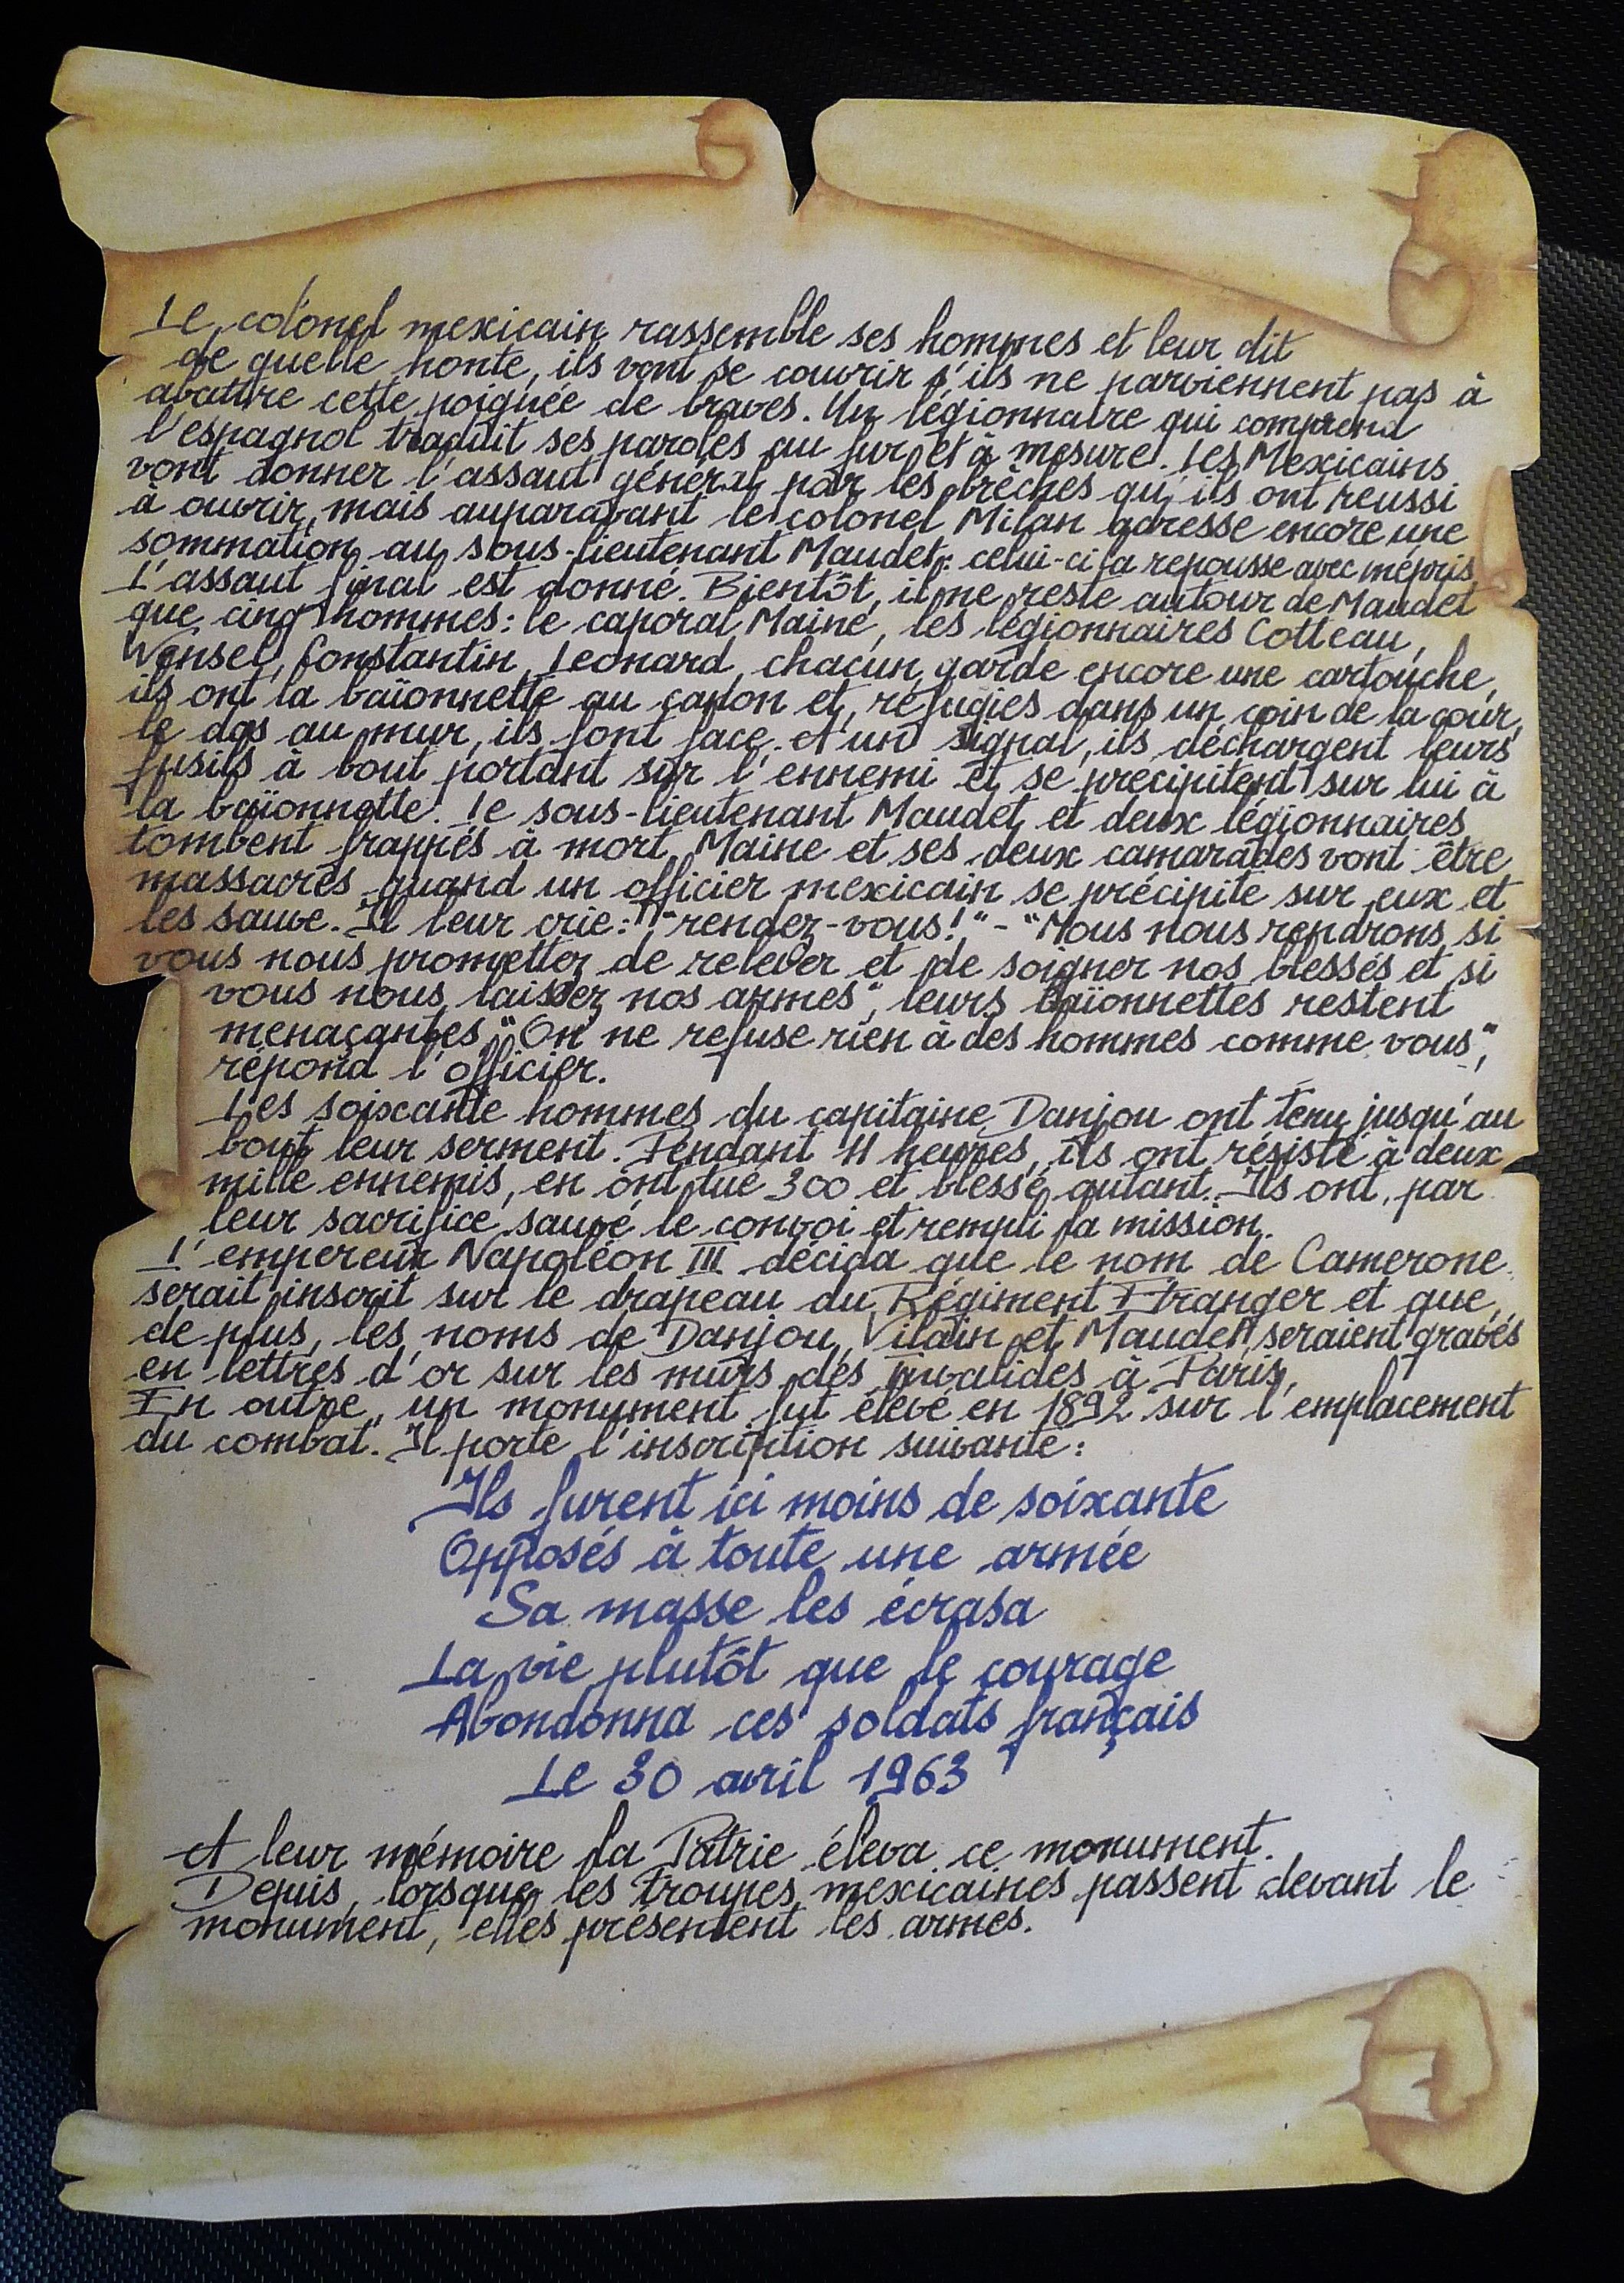 Le colonel mexicain rassemble ses hommes et leur dit
de quelle honte, ils vont se couvrir s'ils ne parviennent pas à
abattre cette poignée de braves. Un légionnaire qui comprend
l'espagnol traduit ses paroles au fur et à mesure. Les Mexicains
vont donner l'assaut général par les brèches qu'ils ont reussi
à ouvrir, mais auparavant le colonel Milan adresse encore une
sommation au sous-lieutenant Maudet: celui-ci la repousse avec mépris
L'assaut final est donné. Bientôt, il ne reste autour de Maudet
que cinq hommes: le caporal Maine, les légionnaires Cotteau,
Wensel, Constantin, Leonard, chacun garde encore une cartouche,
ils ont la baïonnette au canon et, réfugiés dans un coin de la cour,
le dos au mur, ils font face. A un signal, ils déchargent leurs
fusils à bout portant sur l'ennemi et se précipitent sur lui à
la baïonnette. Le sous-lieutenant Maudet et deux légionnaires
tombent frappés à mort. Maine et ses deux camarades vont être
massacrés quand un officier mexicain se précipite sur eux et
les sauve. Il leur crie: "rendez-vous!" - "Nous nous rendrons si
vous nous promettez de relever et de soigner nos blessés et si
vous nous laissez nos armes", leurs baïonnettes restent
menaçantes. "On ne refuse rien à des hommes comme vous",
répond l'officier.
Les soixante hommes du capitaine Danjou ont tenu jusqu'au
bout leur serment. Pendant 11 heures, ils ont résisté à deux
mille ennemis, en ont tué 300 et blessé autant. Ils ont, par
leur sacrifice, sauvé le convoi et rempli la mission.
L'empereur Napoléon III décida que le nom de Camerone
serait inscrit sur le drapeau du Régiment Etranger et que,
de plus, les noms de Danjou, Vilain et Maudet seraient gravés
en lettres d'or sur les murs des Invalides à Paris,
En outre, un monument fut élevé en 1892 sur l'emplacement
du combat. Il porte l'inscription suivante:
Ils furent ici moins de soixante
Opposés à toute une armée
Sa masse les écrasa
La vie plutôt que le courage
Abondonna ces soldats français
Le 30 avril 1963
A leur mémoire la Patrie éleva ce monument.
Depuis, lorsque les troupes mexicaines passent devant le
monument, elles présentent les armes.